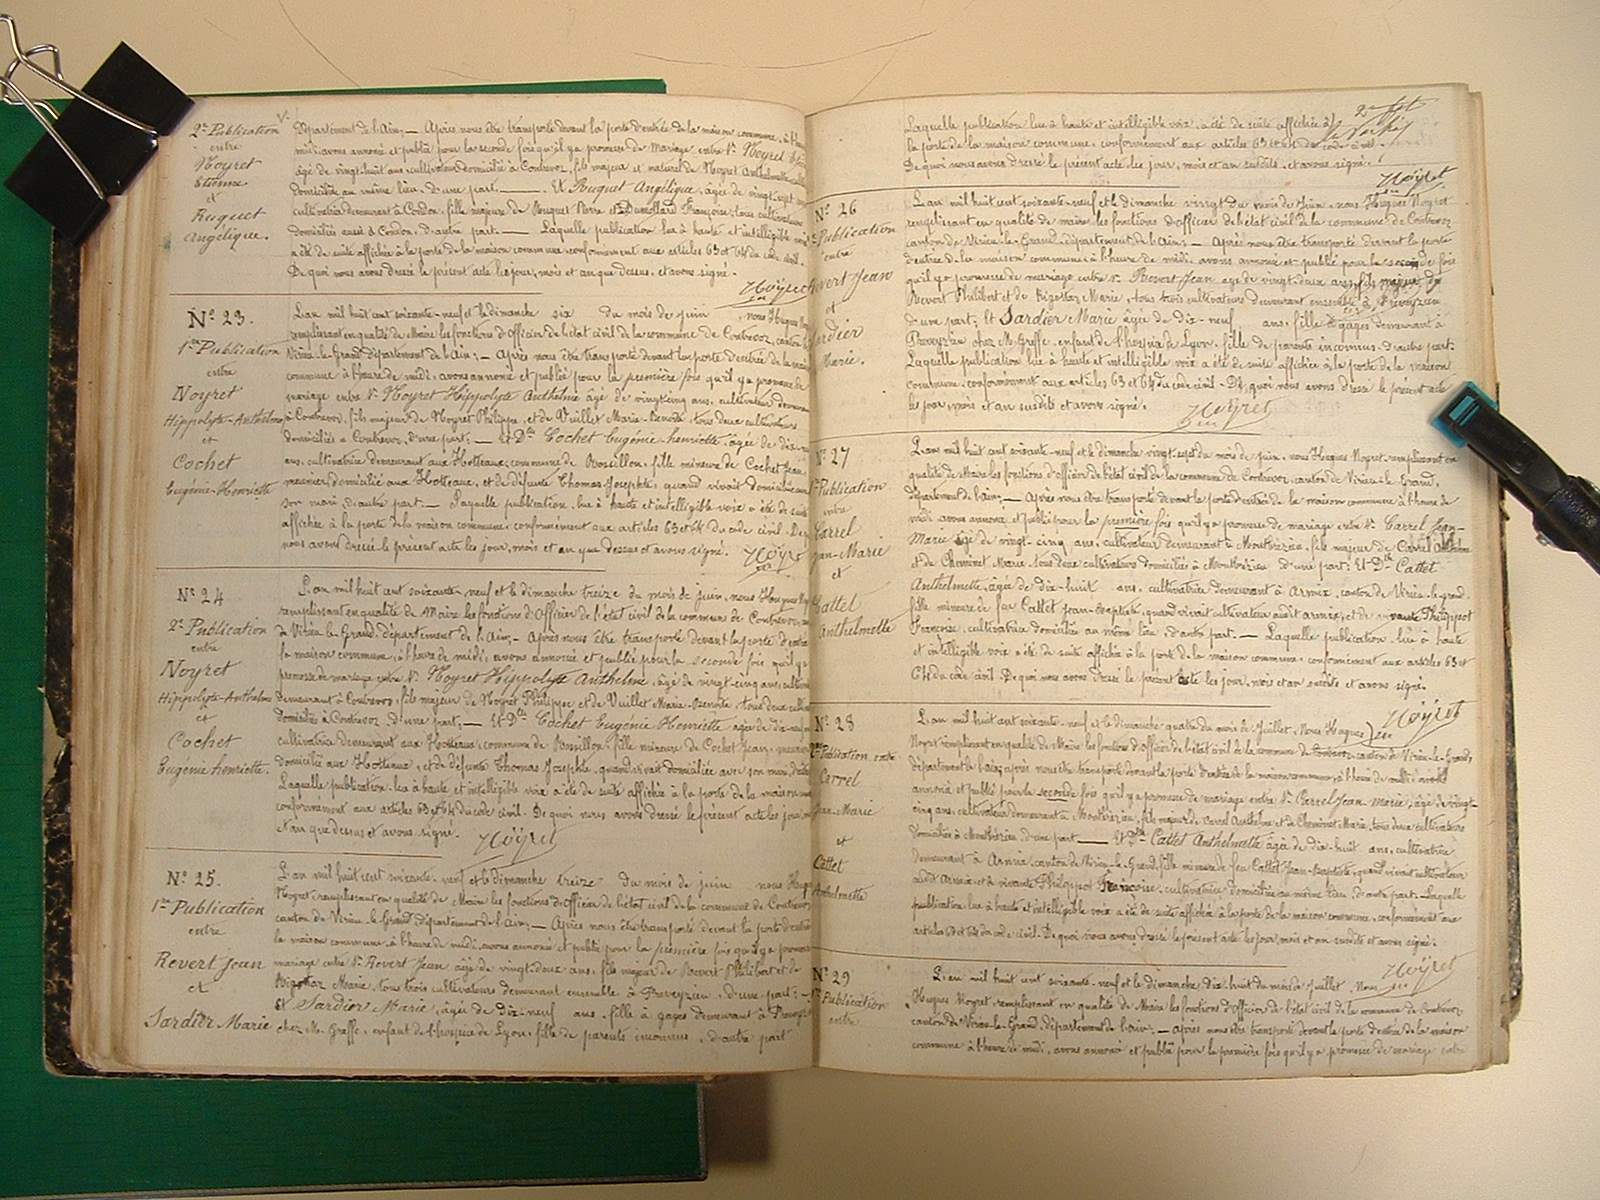 2e Publication
entre
Noyret
Etienne
et
Ruguet
Angélique.
Département de l'Ain; — Après nous être transporté devant la porte d'entrée de la maison commune, à l'heure
midi, avons annoncé et publié pour la seconde fois qu'il y a promesse de Mariage entre Sr Noyret
âgé de vingt-huit ans, cultivateur domicilié à Contrevoz, fils majeur et naturel de Noyret Anthelmette
domiciliée au même lieu, d'une part, — Et Ruguet Angélique, âgée de vingt-sept ans
cultivatrice demeurant à Condon, fille majeure de Ruguet Pierre et Dumollard Françoise, tous cultivateurs
domiciliés aussi à Condon, d'autre part. — Laquelle publication lue à haute et intelligible voix
a été de suite affichée à la porte de la maison commune, conformément aux articles 63 et 64 du code civil.
De quoi nous avons dressé le présent acte les jour, mois et an que dessus, et avons signé.
Noyret
No 23.
1re Publication
entre
Noyret
Hippolyte-Anthelme
et
Cochet
Eugénie-Henriette
L'an mil huit cent soixante-neuf et le dimanche six du mois de juin, nous Hugues
remplissant en qualité de Maire les fonctions d'Officier de l'état civil de la commune de Contrevoz, canton de
Virieu-le-Grand, département de l'Ain; — Après nous être transporté devant la porte d'entrée de la maison
commune à l'heure de midi, avons annoncé et publié pour la première fois qu'il y a promesse de
mariage entre Sr Noyret Hippolyte Anthelme âgé de vingt-cinq ans, cultivateur demeurant
à Contrevoz, fils majeur de Noyret Philippe, et de Vuillet Marie-Benoite, tous deux cultivateurs
domiciliés à Contrevoz, d'une part; — Et Dlle Cochet Eugénie-henriette, âgée de dix-
ans, cultivatrice demeurant aux Hotteaux, commune de Rossillon, fille mineure de Cochet Jean
meunier, domicilié aux Hotteaux, et de défunte Thomas Josephte, quand vivait domiciliée avec
son mari, d'autre part. — Laquelle publication, lue à haute et intelligible voix a été de suite
affichée à la porte de la maison commune, conformément aux articles 63 et 64 du code civil. De quoi
nous avons dressé le présent acte les jour, mois et an que dessus et avons signé. Noyret
No 24
2e Publication
entre
Noyret
Hippolyte-Anthelme
et
Cochet
Eugénie henriette.
L'an mil huit cent soixante-neuf et le dimanche treize du mois de juin, nous Hugues
remplissant en qualité de Maire les fonctions d'Officier de l'état civil de la commune de Contrevoz,
de Virieu-le-Grand, département de l'Ain, — Après nous être transporté devant la porte d'entrée
la maison commune, à l'heure de midi, avons annoncé et publié pour la seconde fois qu'il y a
promesse de mariage entre Sr Noyret Hippolyte Anthelme, âgé de vingt-cinq ans, cultivateur
demeurant à Contrevoz, fils majeur de Noyret Philippe et de Vuillet Marie-Benoite, tous deux
domiciliés à Contrevoz, d'une part, — Et Dlle Cochet Eugénie Henriette, âgée de dix-
cultivatrice demeurant aux Hotteaux, commune de Rossillon, fille mineure de Cochet Jean, meunier
domicilié aux Hotteaux, et de défunte Thomas Josephte, quand vivait domiciliée avec son mari, d'autre
Laquelle publication lue à haute et intelligible voix a été de suite affichée à la porte de la maison
conformément aux articles 63 et 64 du code civil. De quoi nous avons dressé le présent acte les jour, mois
et an que dessus et avons signé. Noyret
No 25.
1re Publication
entre
Revert Jean
et
Sardier Marie
L'an mil huit cent soixante-neuf et le dimanche treize du mois de juin nous Hugues
Noyret, remplissant en qualité de Maire les fonctions d'Officier de l'état civil de la commune de Contrevoz
canton de Virieu-le-Grand, département de l'Ain; — Après nous être transporté devant la porte d'entrée
la maison commune, à l'heure de midi, avons annoncé et publié pour la première fois qu'il y a promesse
mariage entre Sr Revert Jean âgé de vingt-deux ans, fils majeur de Revert Philibert et de
Marie, tous trois cultivateurs demeurant ensemble à Preveyzieu, d'une part; —
Et Sardier Marie, âgée de Dix-neuf ans, fille à gages demeurant à
chez Mr Greffe, enfant de l'hospice de Lyon, fille de parents inconnus, d'autre part
Laquelle publication lue à haute et intelligible voix, a été de suite affichée à
la porte de la maison commune, conformément aux articles 63 et 64 du code civil.
De quoi nous avons dressé le présent acte les jour, mois et an susdits, et avons signé.
Noyret
No 26
Publication
entre
Revert Jean
et
Sardier
Marie.
L'an mil huit cent soixante-neuf et le dimanche vingt du mois de Juin, nous Hugues Noyret
remplissant en qualité de maire les fonctions d'officier de l'état civil de la commune de Contrevoz
canton de Virieu-le-Grand, département de l'Ain; — Après nous être transporté devant la porte
d'entrée de la maison commune à l'heure de midi, avons annoncé et publié pour la seconde fois
qu'il y a promesse de mariage entre Sr Revert Jean âgé de vingt-deux ans, fils majeur de
Revert Philibert et de Marie, tous trois cultivateurs demeurant ensemble à Preveyzieu
d'une part; Et Sardier Marie âgée de Dix-neuf ans, fille à gages demeurant à
Preveyzieu chez Mr Greffe, enfant de l'hospice de Lyon, fille de parents inconnus, d'autre part;
Laquelle publication lue à haute et intelligible voix a été de suite affichée à la porte de la maison
commune, conformément aux articles 63 et 64 du code civil. De quoi nous avons dressé le présent acte
les jour, mois et an susdits et avons signé. Noyret
No 27
Publication
entre
Carrel
Jean-Marie
et
Cattet
Anthelmette
L'an mil huit cent soixante-neuf et le dimanche vingt-sept du mois de juin, nous Hugues Noyret remplissant en
qualité de Maire les fonctions d'officier de l'état civil de la commune de Contrevoz, canton de Virieu-le-Grand,
département de l'ain; — Après nous être transporté devant la porte d'entrée de la maison commune à l'heure de
midi, avons annoncé et publié pour la première fois qu'il y a promesse de mariage entre Sr Carrel Jean-
Marie âgé de vingt-cinq ans, cultivateur demeurant à Montbrézieu, fils majeur de Carrel Anthelme
et de Cheminet Marie, tous deux cultivateurs domiciliés à Montbrézieu d'une part; Et Dlle Cattet
Anthelmette, âgée de dix-huit ans, cultivatrice demeurant à Armix, canton de Virieu-le-grand,
fille mineure de feu Cattet Jean-Baptiste, quand vivait cultivateur audit armix, et de vivante Philippot
Françoise, cultivatrice domiciliée au même lieu, d'autre part. — Laquelle publication lue à haute
et intelligible voix a été de suite affichée à la porte de la maison commune, conformément aux articles 63 et
64 du code civil. De quoi nous avons dressé le présent acte les jour, mois et an susdits et avons signé.
Noyret
No 28
2me Publication entre
Carrel
Jean-Marie
et
Cattet
Anthelmette
L'an mil huit cent soixante-neuf et le dimanche quatre du mois de Juillet, Nous Hugues
Noyret remplissant en qualité de Maire, les fonctions d'officier de l'état civil de la commune de Contrevoz canton de Virieu-le-Grand,
département de l'ain, après nous être transporté devant la porte d'entrée de la maison commune, à l'heure de midi, avons
annoncé et publié pour la seconde fois qu'il y a promesse de mariage entre Sr Carrel Jean-marie, âgé de vingt-
cinq ans, cultivateur demeurant à Montbrézieu, fils majeur de Carrel Anthelme et de Cheminet Marie, tous deux cultivateurs
domiciliés à Montbrézieu, d'une part — Et Dlle Cattet Anthelmette âgée de dix-huit ans, cultivatrice
demeurant à Armix, canton de Virieu-le-Grand, fille mineure de feu Cattet Jean-Baptiste, quand vivait cultivateur
audit Armix, et de vivante Philippot Françoise, cultivatrice domiciliée au même lieu, d'autre part. Laquelle
publication lue à haute et intelligible voix a été de suite affichée à la porte de la maison commune, conformément aux
articles 63 et 64 du code civil. De quoi nous avons dressé le présent acte les jour, mois et an susdits et avons signé.
Noyret
No 29
1re Publication
entre
L'an mil huit cent soixante-neuf et le dimanche dix-huit du mois de juillet Nous
Hugues Noyret, remplissant en qualité de Maire, les fonctions d'officier de l'état civil de la commune de Contrevoz,
canton de Virieu-le-Grand, département de l'ain; — après nous être transporté devant la porte d'entrée de la maison
commune à l'heure de midi, avons annoncé et publié pour la première fois qu'il y a promesse de mariage entre